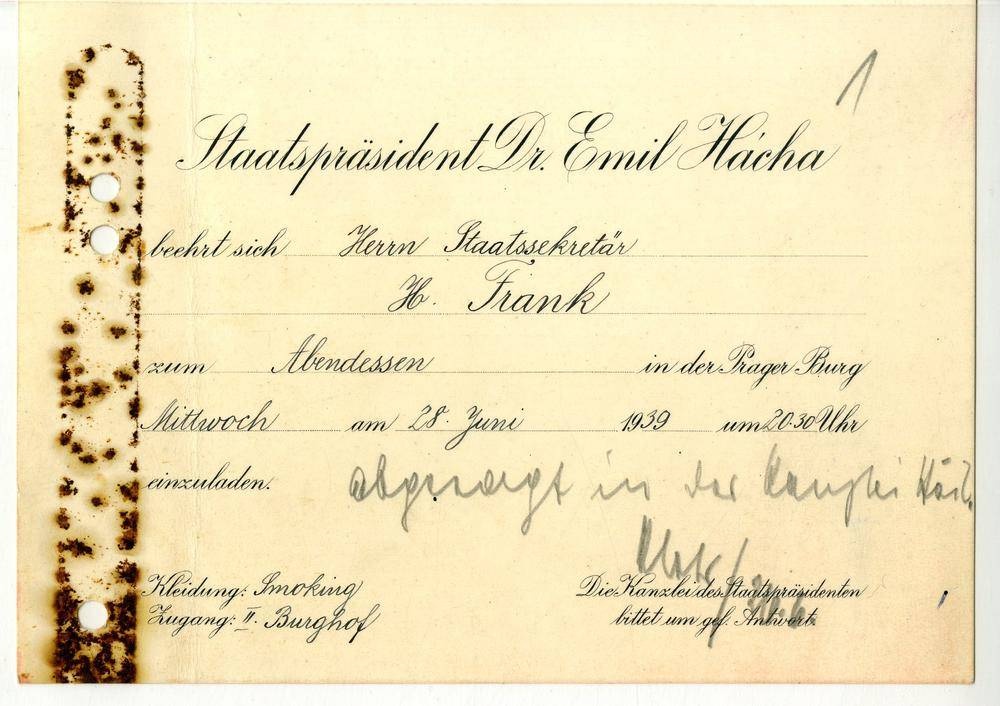 1
Staatspräsident Dr. Emil Hácha
beehrt sich Herrn Staatssekretär
H. Frank
zum Abendessen in der Prager Burg
Mittwoch am 28. Juni 1939 um 20.30 Uhr
einzuladen.
abgesagt in der Kanzlei
Kleidung: Smoking
Die Kanzlei des Staatspräsidenten
Zugang: II. Burghof
bittet um gefl. Antwort.